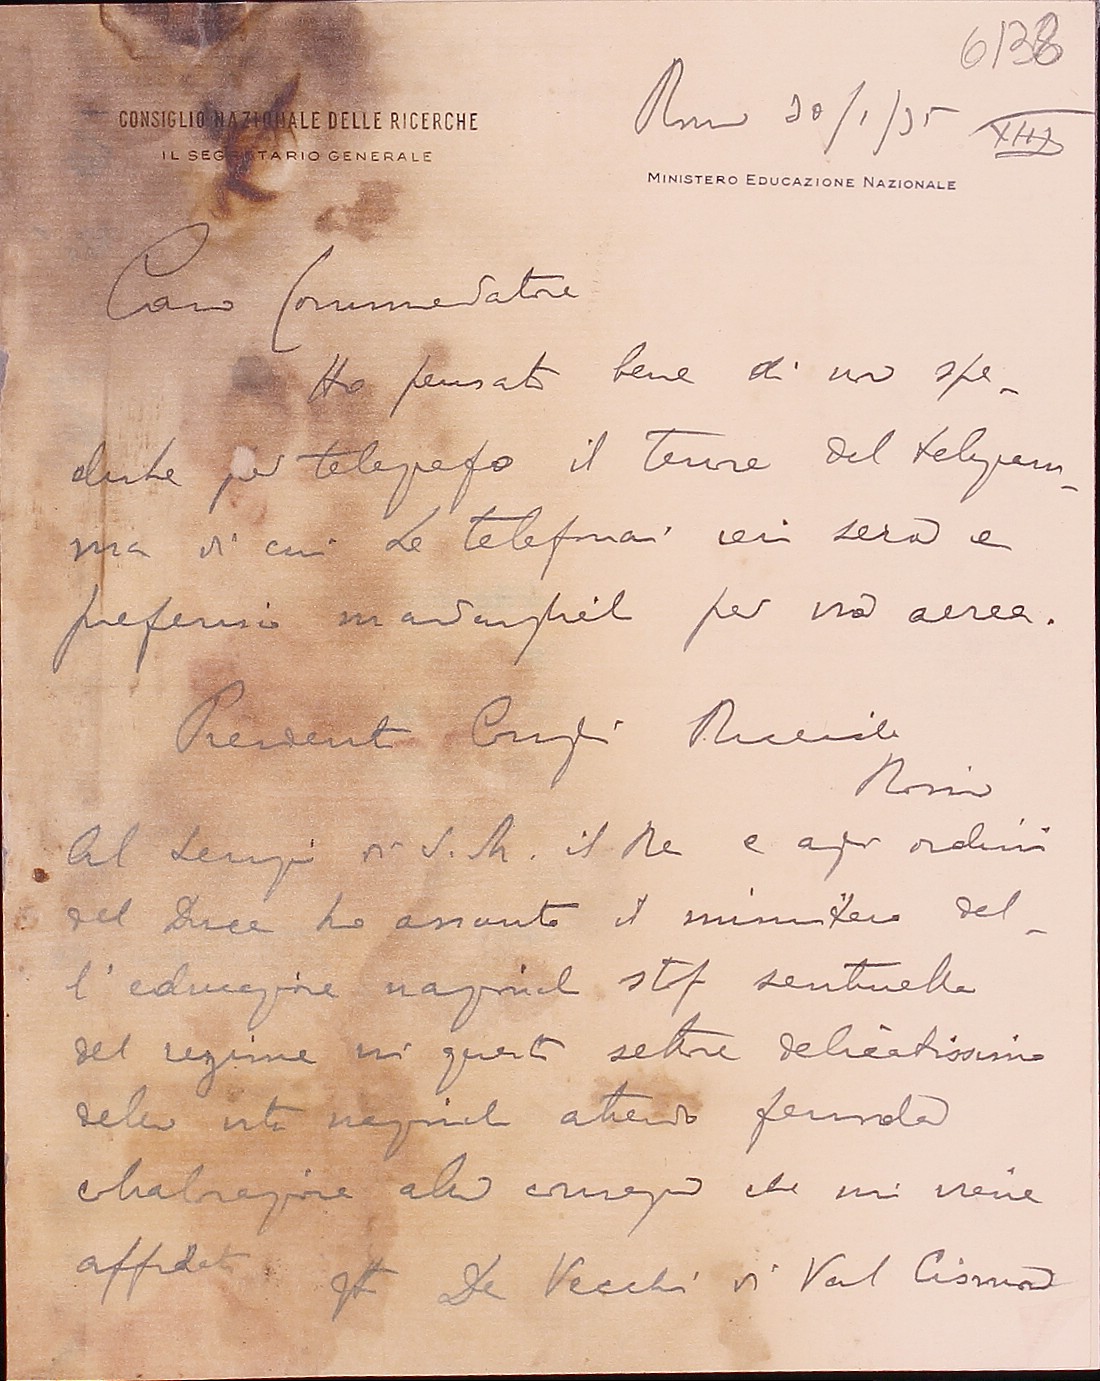 6138
CONSIGLIO NAZIONALE DELLE RICERCHE
IL SEGRETARIO GENERALE
Roma 30/1/35 XIII
MINISTERO EDUCAZIONE NAZIONALE
Caro Commendatore
Ho pensato bene di non spe-
dirLe per telegrafo il tenore del telegram-
ma di cui Le telefonai ieri sera e
preferisco mandarglielo per via aerea.
Presidente Consiglio Ricerche
Roma
Al servizio di S. M. il Re e agli ordini
del Duce ho assunto il ministero del-
l'educazione nazionale stop sentinella
del regime in questo settore delicatissimo
della vita nazionale attendo feconda
collaborazione alla consegna che mi viene
affidata De Vecchi di Val Cismon